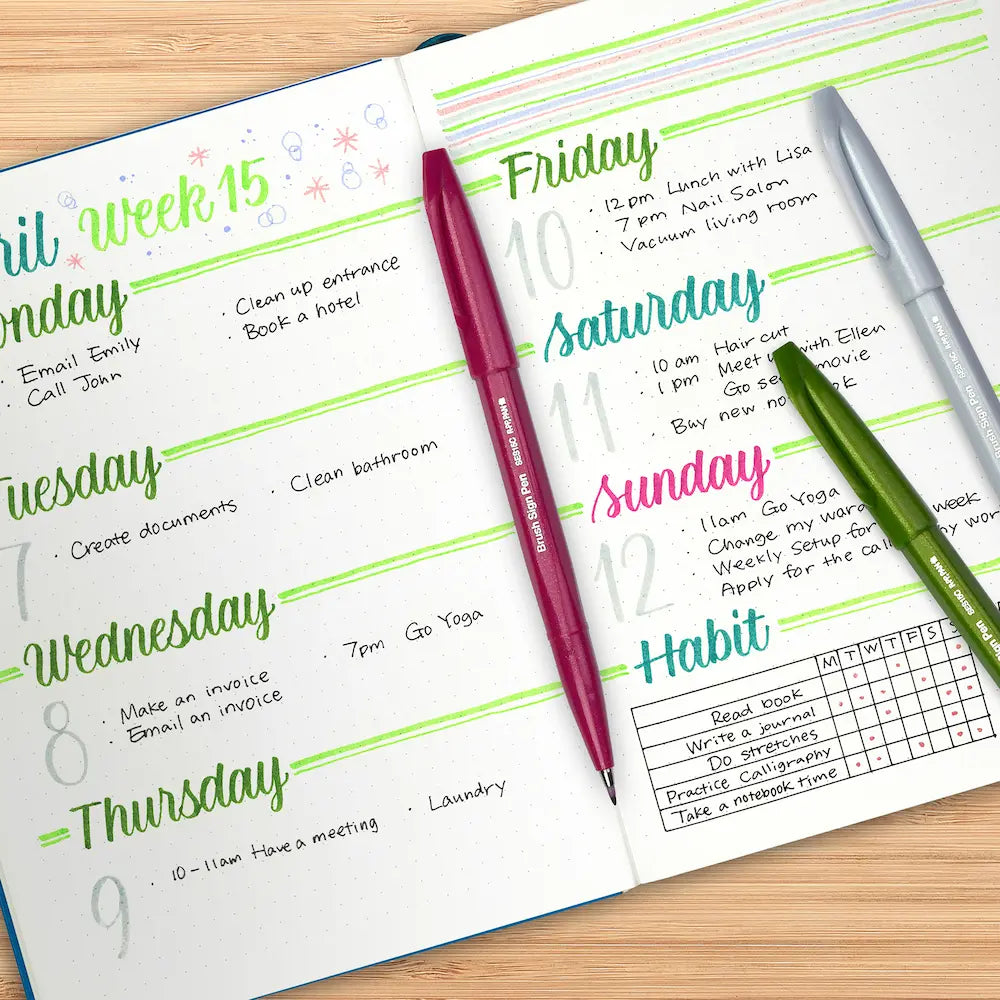 ril Week 15
onday
· Email Emily
· Call John
· Clean up entrance
Book a hotel
Tuesday
7
· Create documents
· Clean bathroom
Wednesday
8
· Make an invoice
· Email an invoice
· 7pm Go Yoga
Thursday
9
· 10-11am Have a meeting
· Laundry
Friday
10
· 12pm Lunch with Lisa
· 7pm Nail Salon
· Vacuum living room
Saturday
11
· 10 am Hair cut
· 1 pm Meet with Ellen
Go see movie
· Buy new
Sunday
12
· 11am Go Yoga
· Change my
· Weekly Setup for week
· Apply for the
Habit
M T W T F S S
Read book
Write a journal
Do stretches
Practice Calligraphy
Take a notebook time
Brush Sign Pen SES15C
Brush Sign Pen SES15C
Sign Pen SES15C